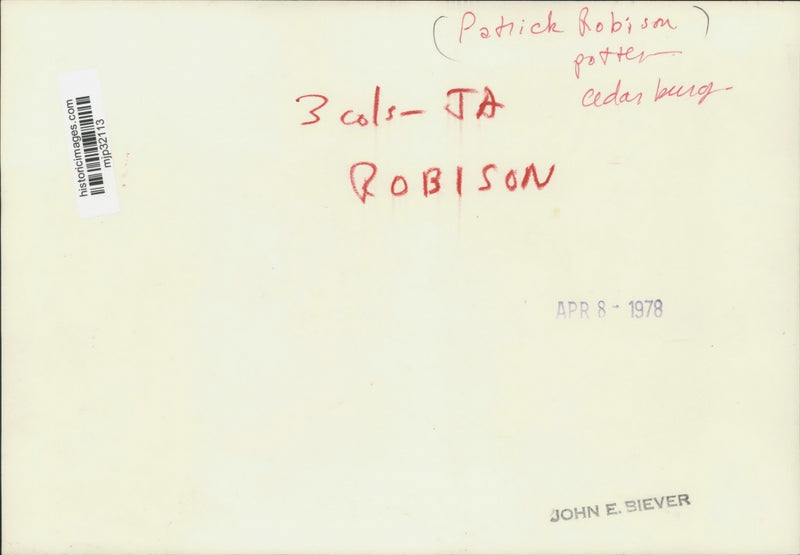 (Patrick Robison)
potter
cedarburg
3 cols - JA
ROBISON
historicimages.com
mjp32113
APR 8 - 1978
JOHN E. BIEVER